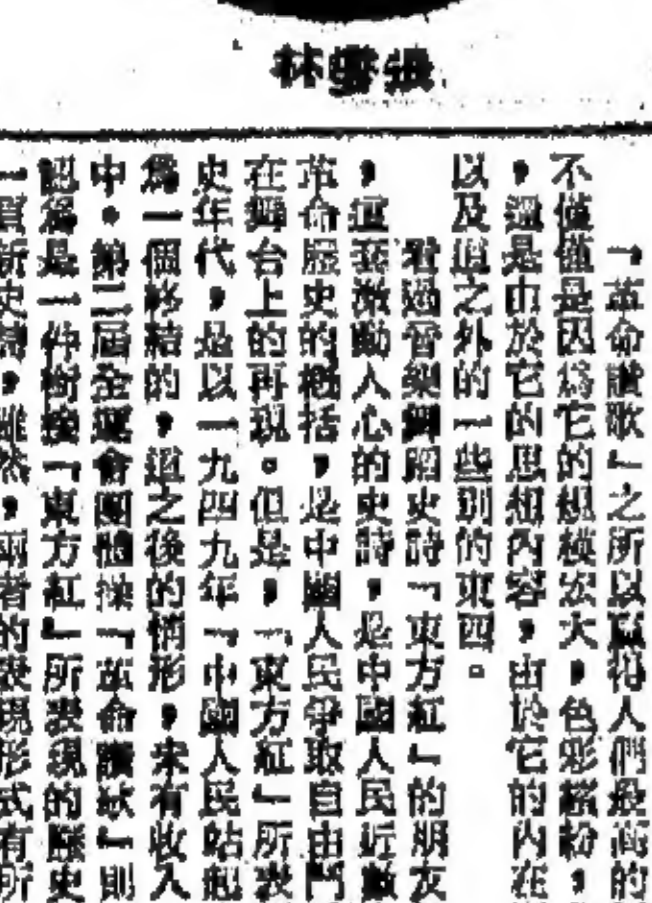 張雪林
「革命讚歌」之所以贏得人們最高的
不僅僅是因爲它的規模宏大，色彩繽紛，
，還是由於它的思想內容，由於它的內在
以及這之外的一些別的東西。
看過音樂舞蹈史詩「東方紅」的朋友
，這套激動人心的史詩，是中國人民近數
革命歷史的概括，是中國人民爭取自由鬥
在舞台上的再現。但是，「東方紅」所表
史年代，是以一九四九年「中國人民站起
爲一個終結的，這之後的情形，未有收入
中。第二屆全運會團體操「革命讚歌」則
認爲是一件銜接「東方紅」所表現的歷史
一頁新史詩，雖然，兩者的表現形式有所